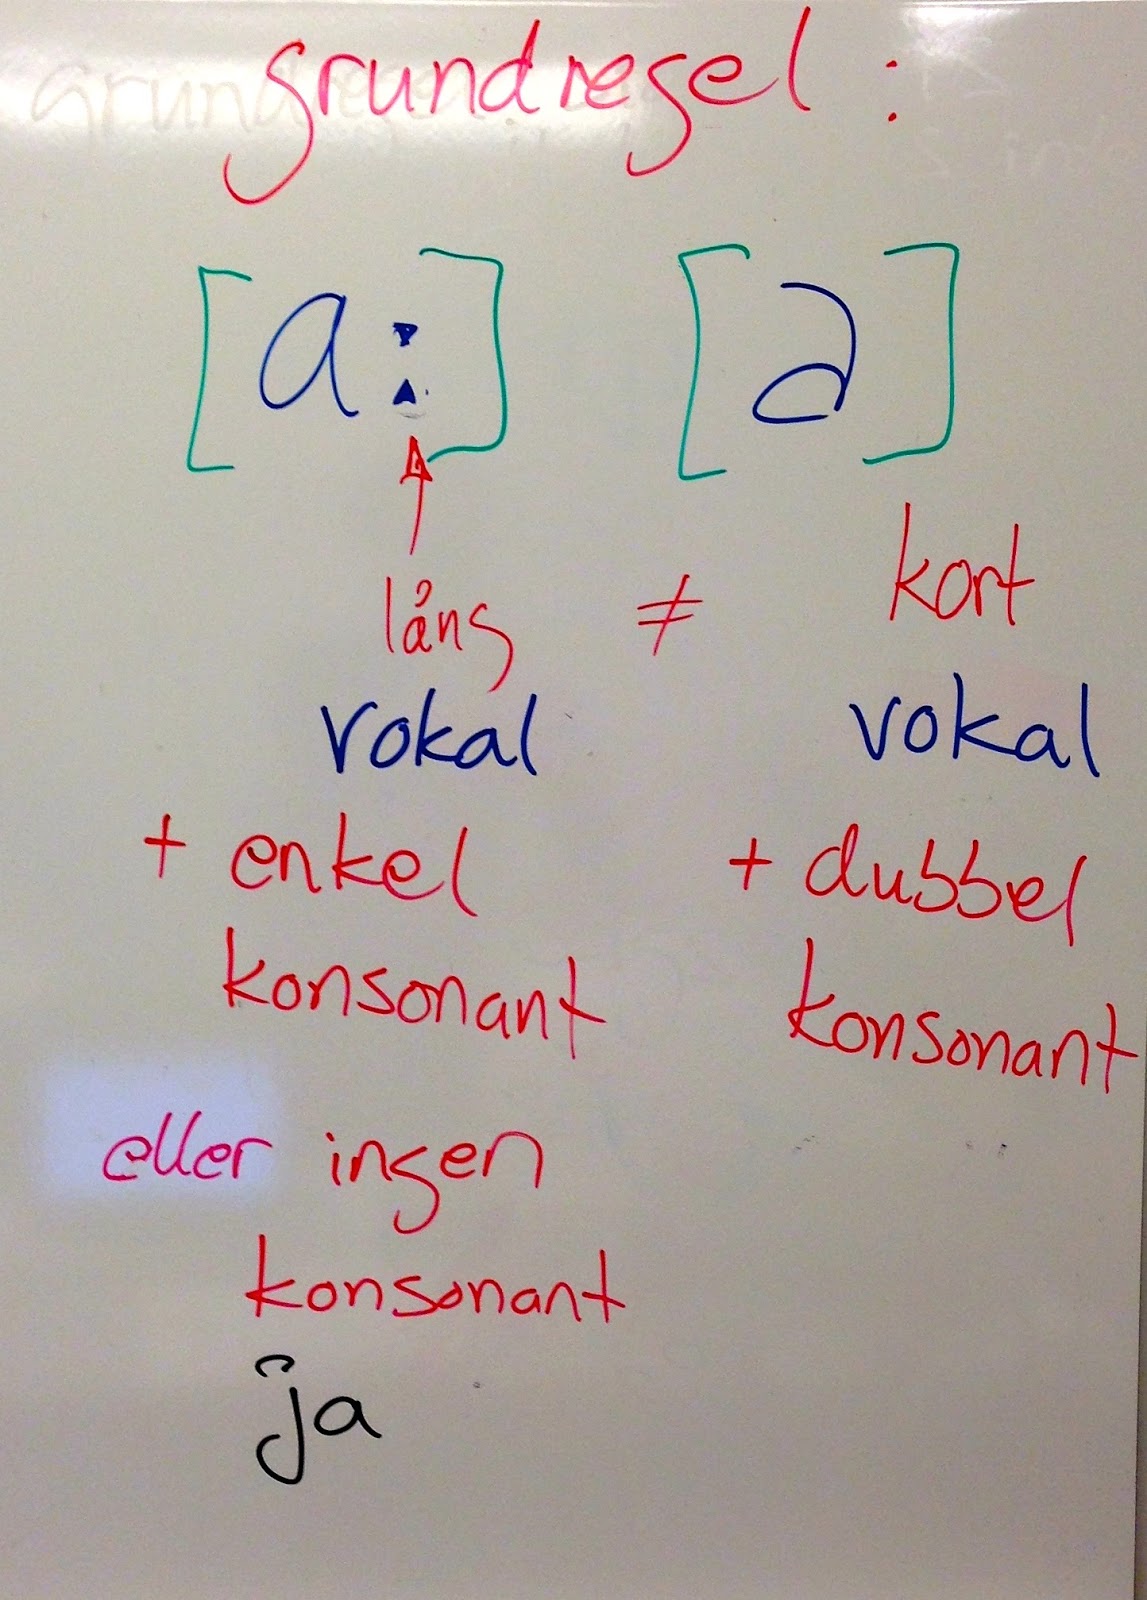 grundregel :
[a:] [a]
lång ≠ kort
vokal vokal
+ enkel + dubbel
konsonant konsonant
eller ingen
konsonant
ja